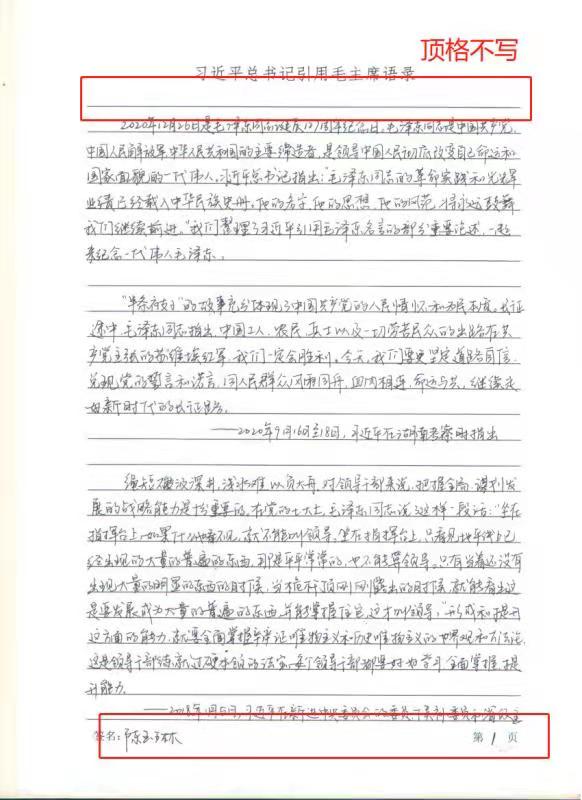 顶格不写
习近平总书记引用毛主席语录
2020年12月26日是毛泽东同志诞辰127周年纪念日。毛泽东同志是中国共产党,
中国人民解放军,中华人民共和国的主要缔造者,是领导中国人民彻底改变自己命运和
国家面貌的一代伟人。习近平总书记指出:"毛泽东同志的革命实践和光辉
业绩已经载入中华民族史册。他的名字,他的思想,他的风范,将永远鼓舞
我们继续前进。"我们整理了习近平引用毛泽东名言的部分重要论述,一起
来纪念一代伟人毛泽东。
"半条被子"的故事充分体现了中国共产党的人民情怀和为民本质。长征
途中,毛泽东同志指出,中国工人、农民、兵士以及一切劳苦民众的出路在共
产党主张的苏维埃红军,我们一定会胜利。今天,我们要更坚定道路自信,
兑现党的誓言和诺言,同人民群众风雨同舟、血肉相连、命运与共,继续走
好新时代的长征路。
——2020年9月16日至18日,习近平在湖南考察时指出
绠短难汲深井,浅水难以负大舟。对领导干部来说,把握全局、谋划发
展的战略能力是十分重要的。在党的七大上,毛泽东同志说过这样一段话:"坐在
指挥台上,如果什么也看不见,就不能叫领导。坐在指挥台上,只看见地平线上已
经出现的大量的普遍的东西,那是平平常常的,也不能算领导。只有当着还没有
出现大量的明显的东西的时候,当桅杆顶刚刚露出的时候,就能看出这
是要发展成为大量的普遍的东西,并能掌握住它,这才叫领导。"形成和提升
这方面的能力,就要全面掌握辩证唯物主义和历史唯物主义的世界观和方法论,
这是领导干部练就过硬本领的法宝。每个领导干部都要好好学习、全面掌握、提
升能力。
——2018年1月5日,习近平在新进中央委员会的委员、候补委员和省部级主
签名:陈玉林
第 1 页